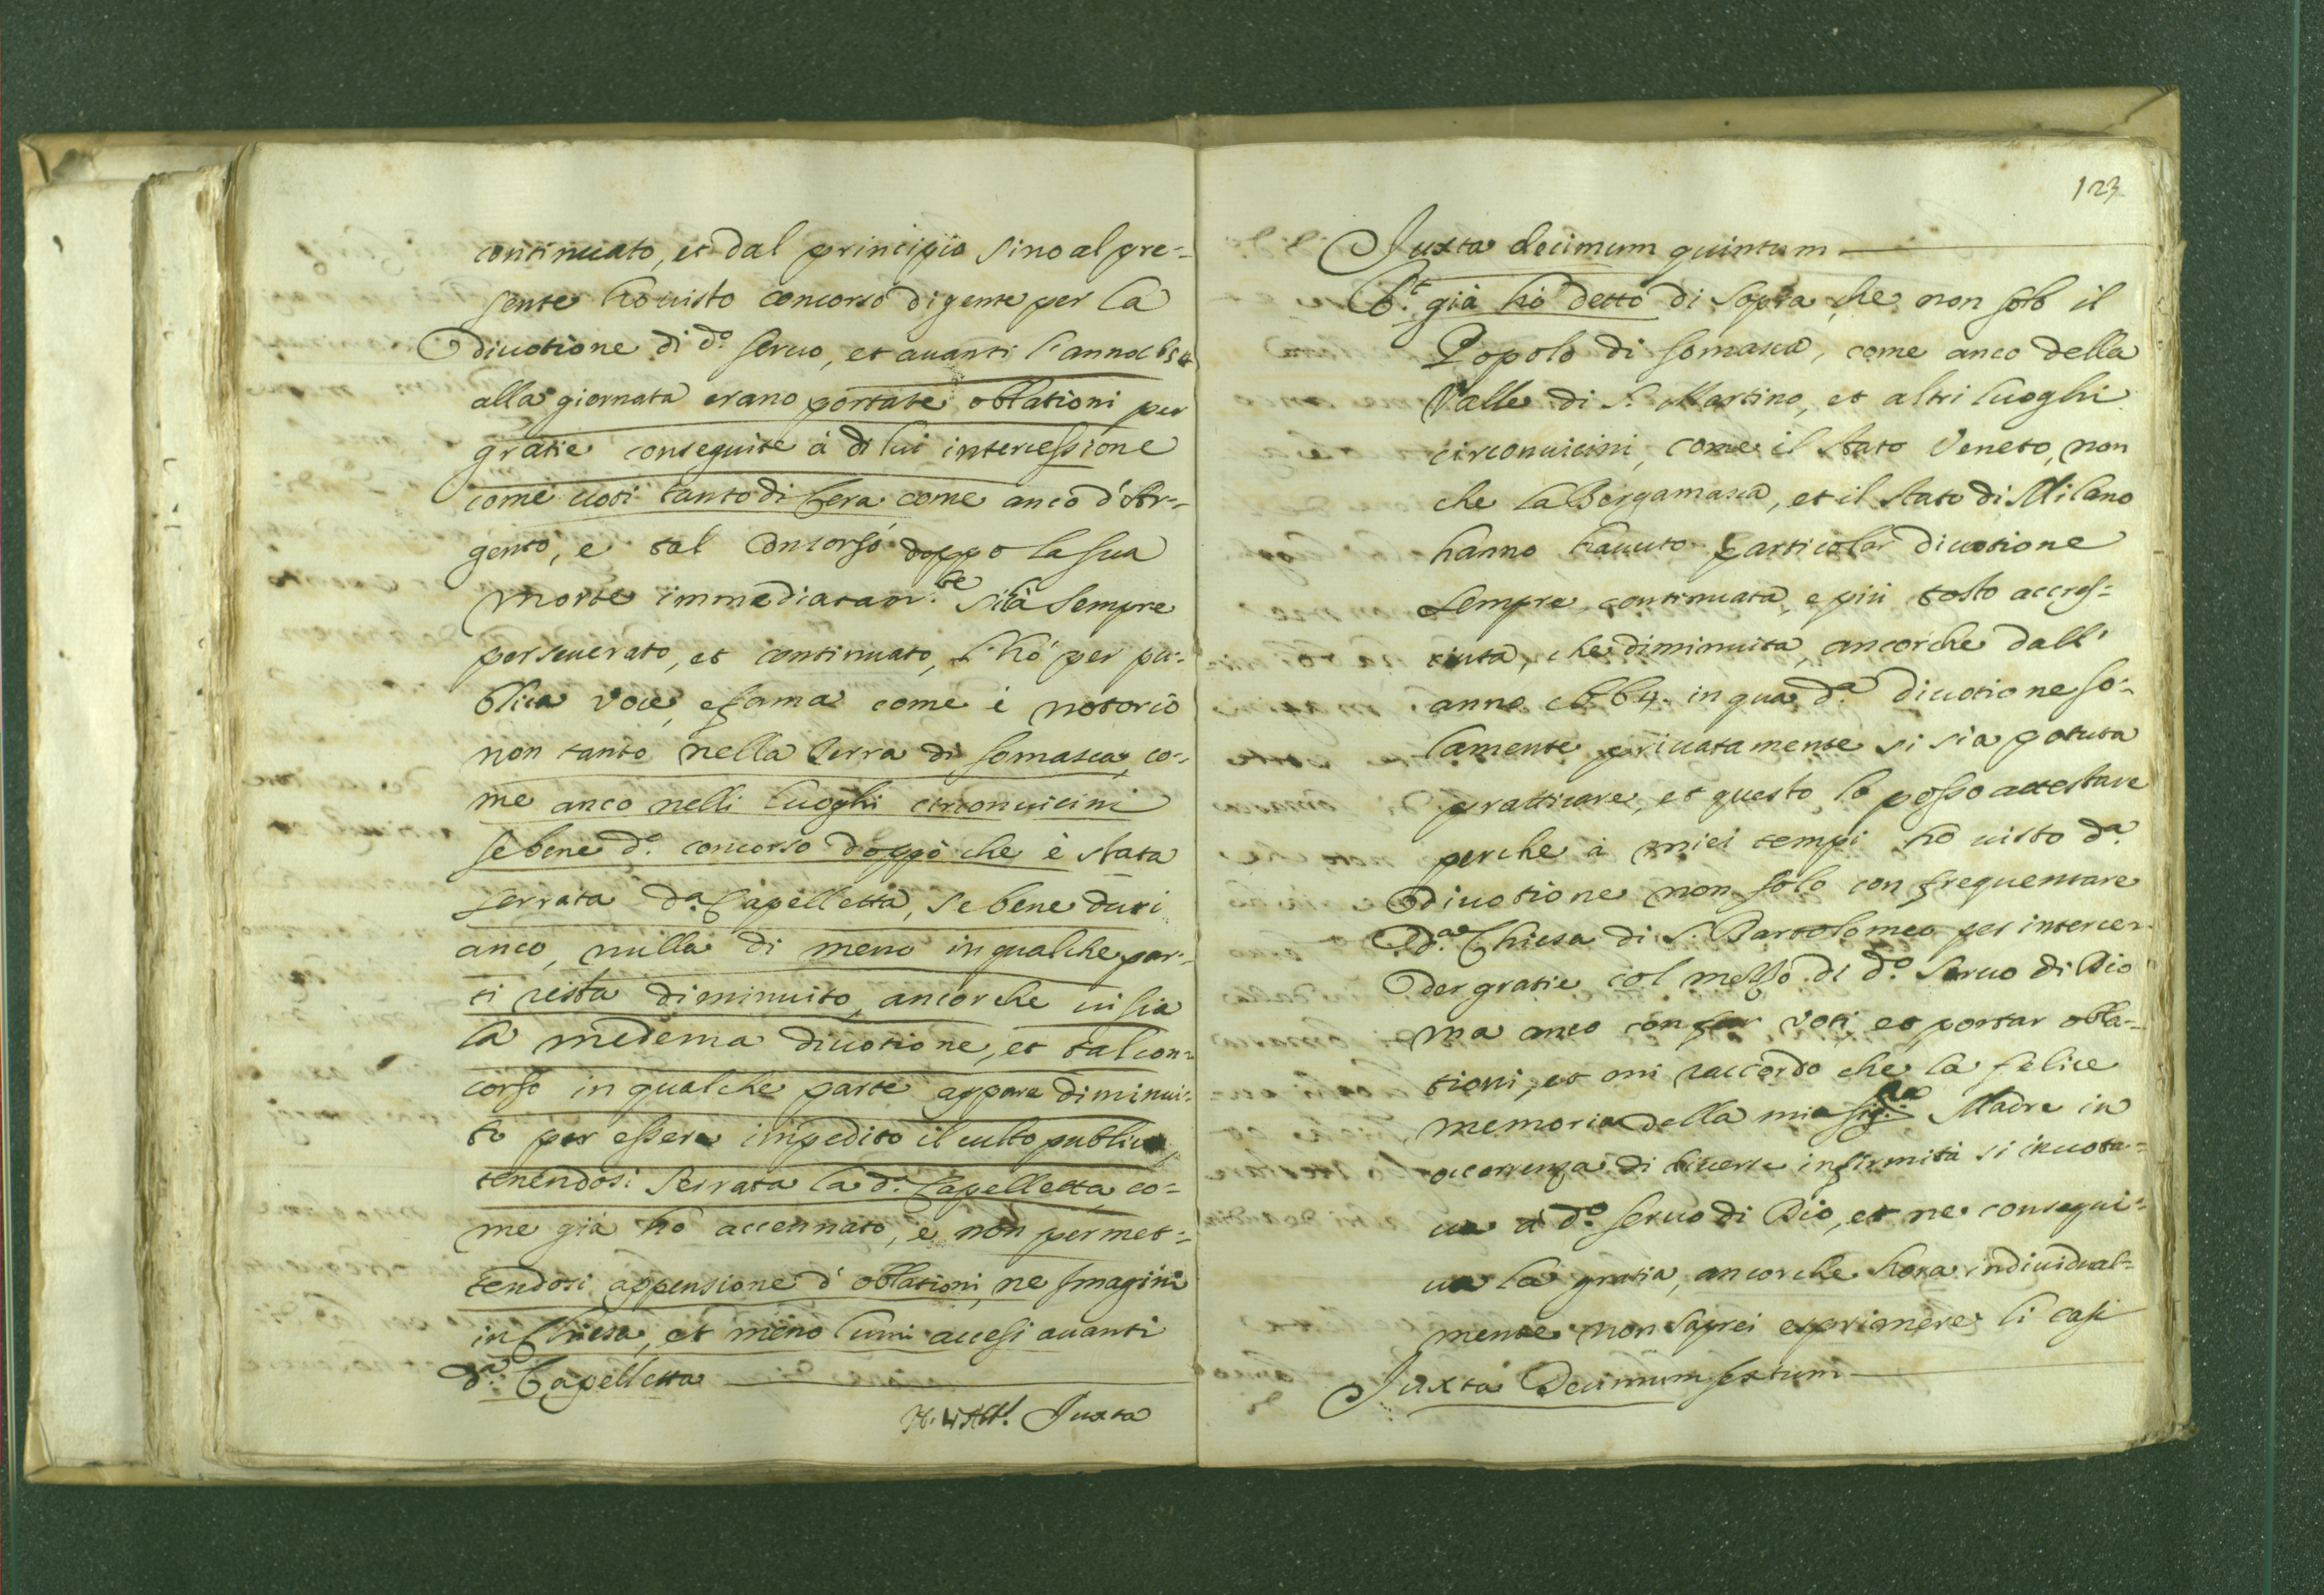 continuato, et dal principio sino al pre-
sente ho uisto concorso di gente per la
diuotione di d.º seruo, et auanti l'anno 1654
alla giornata erano portate oblationi per
gratie conseguite à di lui intercessione
come uoti tanto di Cera come anco d'Ar-
gento, e tal Concorso doppo la sua
morte immediatam.te sià sempre
perseuerato, et continuato, l'hò per pu-
blica voce, e fama come è notorio
non tanto nella Terra di Somasca, co-
me anco nelli luoghi circonuicini
se bene d.º concorso doppo che è stata
serrata d.a Capelletta, se bene duri
anco, nulla di meno in qualche par-
ti resta diminuito, ancorche ui sia
la medema diuotione, et tal con-
corso in qualche parte appare diminui-
to per essere impedito il culto publico,
tenendosi serrata la d.a Capelletta co-
me già hò accennato, e non permet-
tendosi appensione d'oblationi, ne Imagini
in Chiesa, et meno lumi accesi auanti
d.a Capelletta
Juxta
123
Juxta decimum quintum
R.t già hò detto di sopra, che non solo il
Popolo di Somasca, come anco della
Valle di S. Martino, et altri luoghi
circonuicini, come il stato Veneto, non
che la Bergamasca, et il stato di Milano
hanno hauuto particolar diuotione
sempre continuata, e più tosto accres-
ciuta, che diminuita, ancorche dall'
anno 1664. in qua d.a diuotione so-
lamente priuatamente si sia potuta
pratticare, et questo lo posso attestare
perche à miei tempi hò uisto d.a
diuotione non solo con frequentare
d.a Chiesa di S. Bartolomeo per interce-
der gratie col mezzo di d.º Seruo di Dio
ma anco con far voti, et portar obla-
tioni, et mi raccordo che la felice
memoria della mia Sig.ra Madre in
occorrenza di diuerse infirmità si inuota-
ua à d.º seruo di Dio, et ne consegui-
ua la gratia, ancorche hora indiuidual-
mente non saprei esprimere li casi
Juxta Decimum sextum